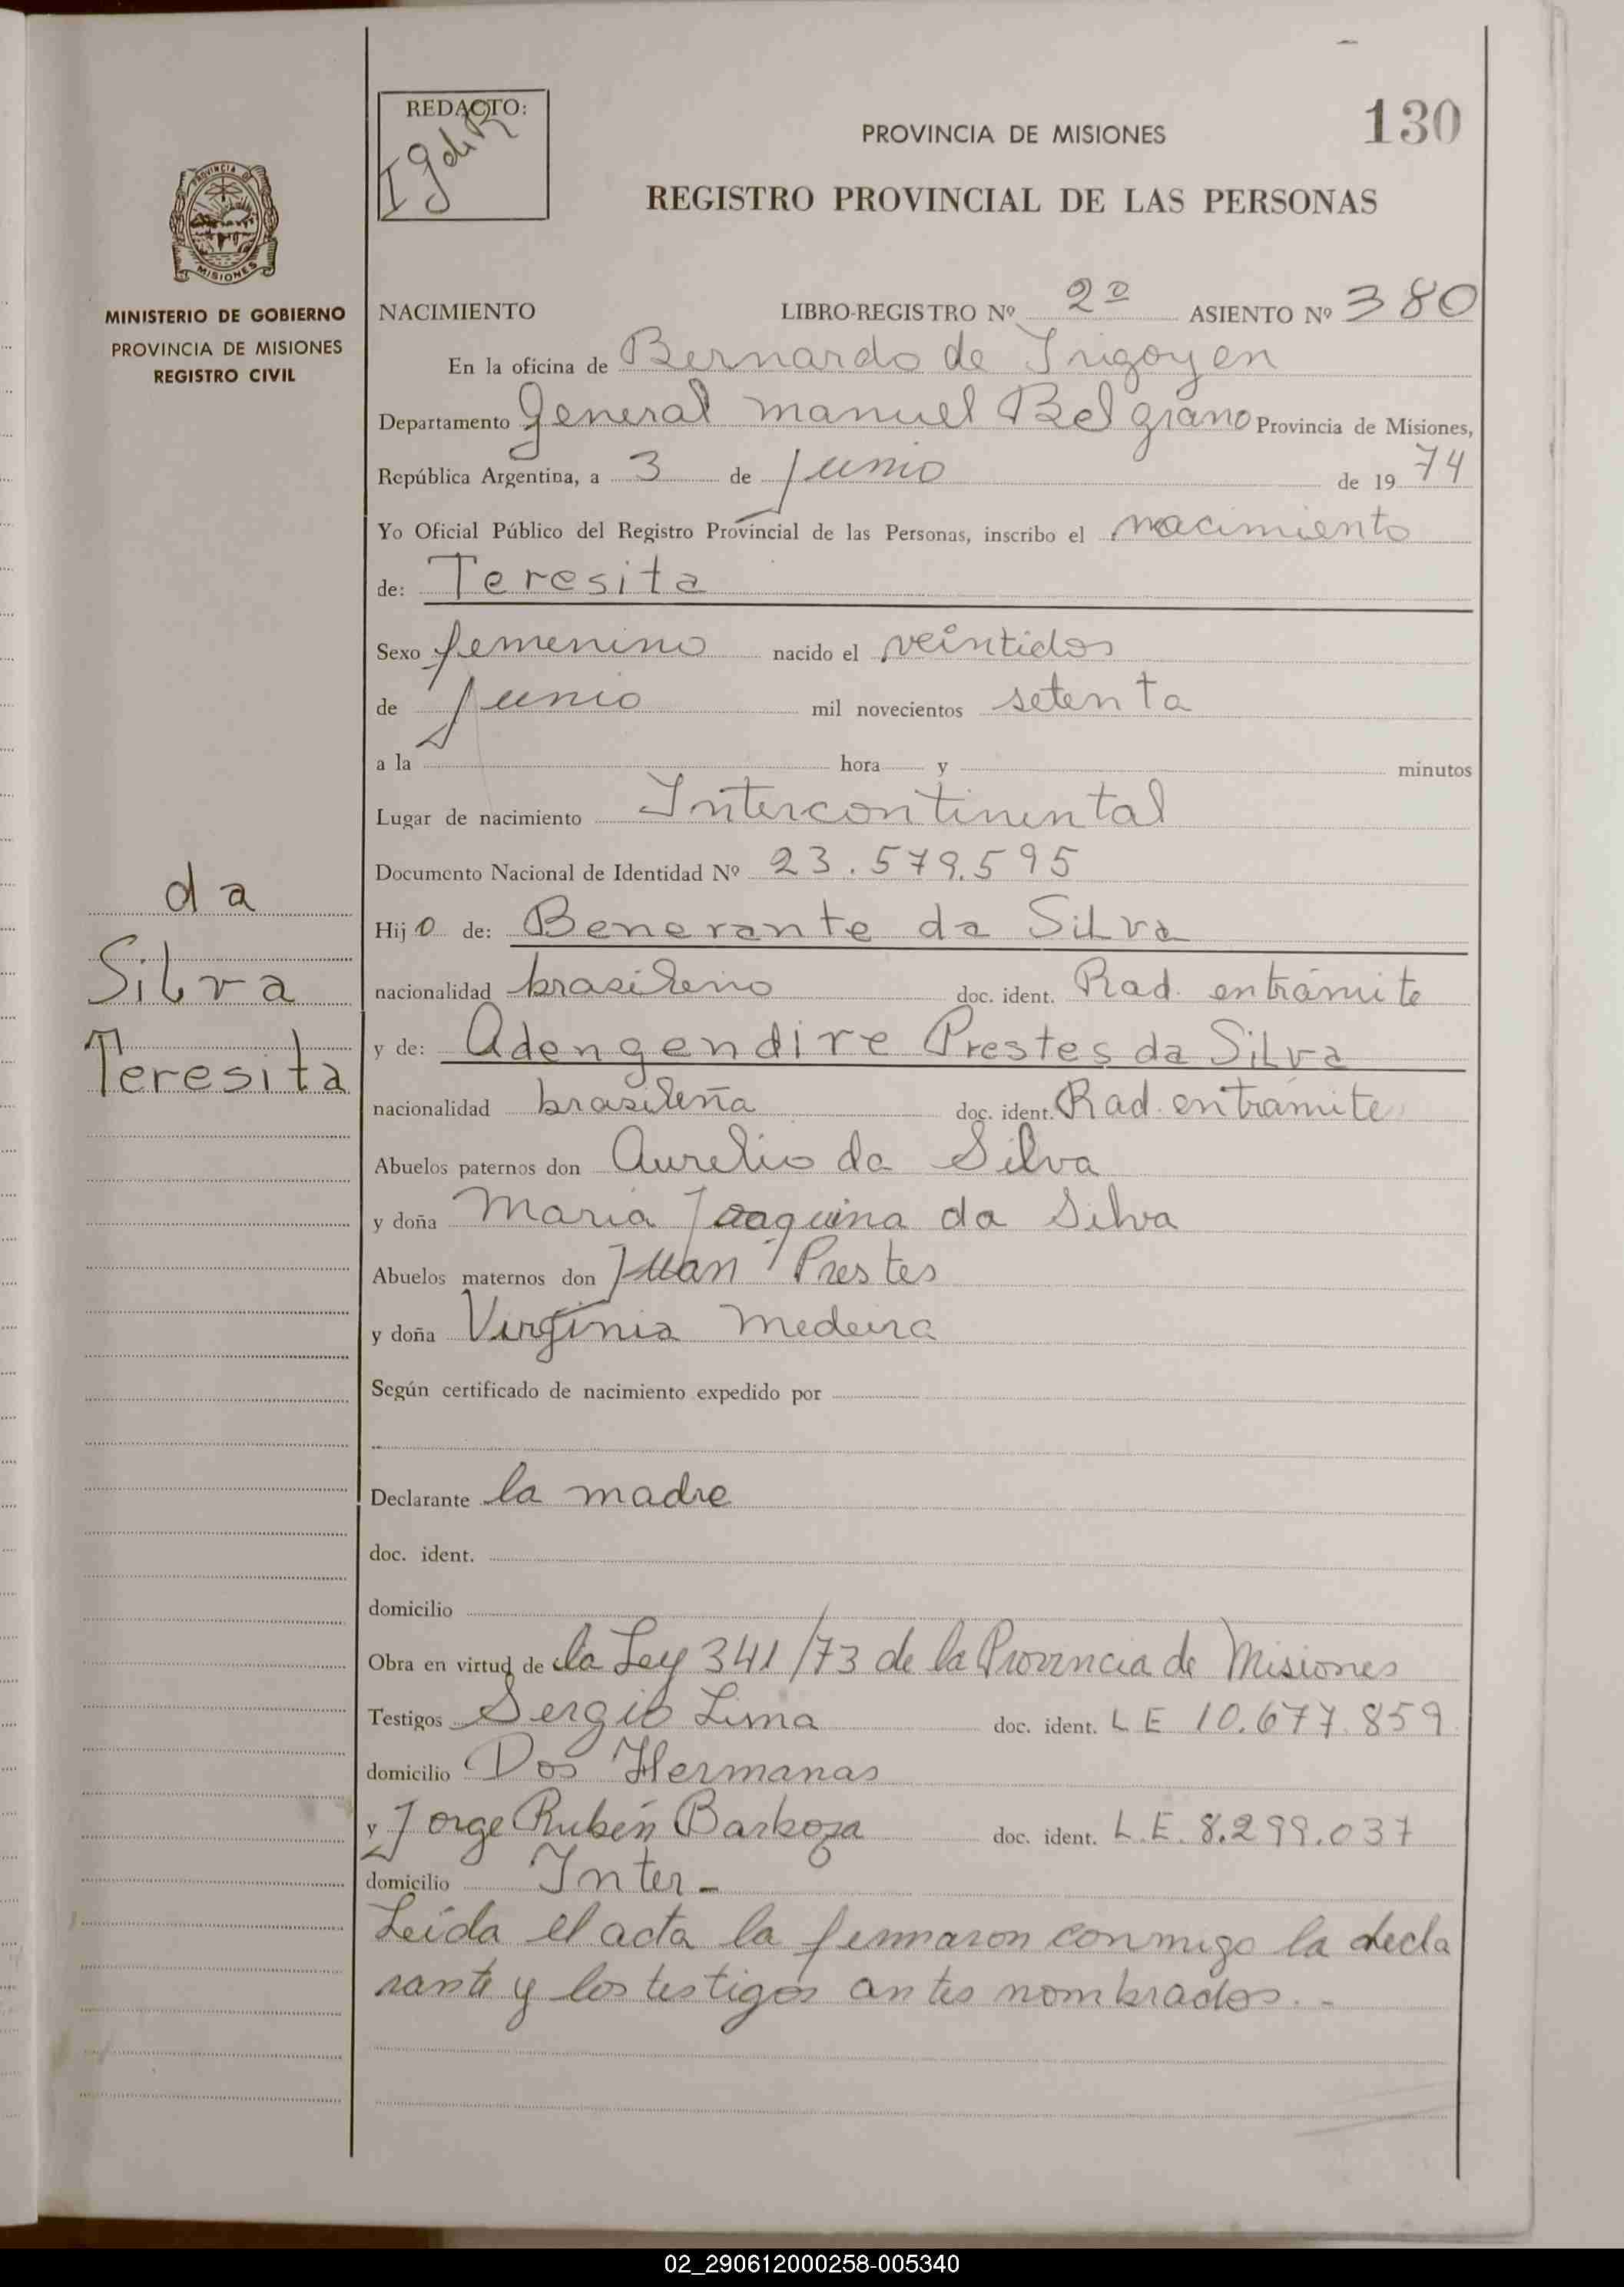 REDACTO:
PROVINCIA DE MISIONES
130
REGISTRO PROVINCIAL DE LAS PERSONAS
PROVINCIA DE
MISIONES
MINISTERIO DE GOBIERNO
PROVINCIA DE MISIONES
REGISTRO CIVIL
NACIMIENTO LIBRO-REGISTRO Nº 2º ASIENTO Nº 380
En la oficina de Bernardo de Irigoyen
Departamento General Manuel Belgrano Provincia de Misiones,
República Argentina, a 3 de Junio de 1974
Yo Oficial Público del Registro Provincial de las Personas, inscribo el nacimiento
de: Teresita
Sexo femenino nacido el veintidos
de Junio mil novecientos setenta
a la hora y minutos
Lugar de nacimiento Intercontinental
Documento Nacional de Identidad Nº 23.579.595
da
Silva
Teresita
Hijo de: Benerante da Silva
nacionalidad brasileño doc. ident. Rad. en trámite
y de: Adengendire Prestes da Silva
nacionalidad brasileña doc. ident. Rad. en trámite
Abuelos paternos don Aurelio da Silva
y doña Maria Joaquina da Silva
Abuelos maternos don Juan Prestes
y doña Virginia Medeira
Según certificado de nacimiento expedido por
Declarante la madre
doc. ident.
domicilio
Obra en virtud de la Ley 341/73 de la Provincia de Misiones
Testigos Sergio Lima doc. ident. L E 10.677.859
domicilio Dos Hermanas
y Jorge Rubén Barboza doc. ident. L.E. 8.299.037
domicilio Inter-
Leída el acta la firmaron conmigo la decla
rante y los testigos antes nombrados.-
02_290612000258-005340